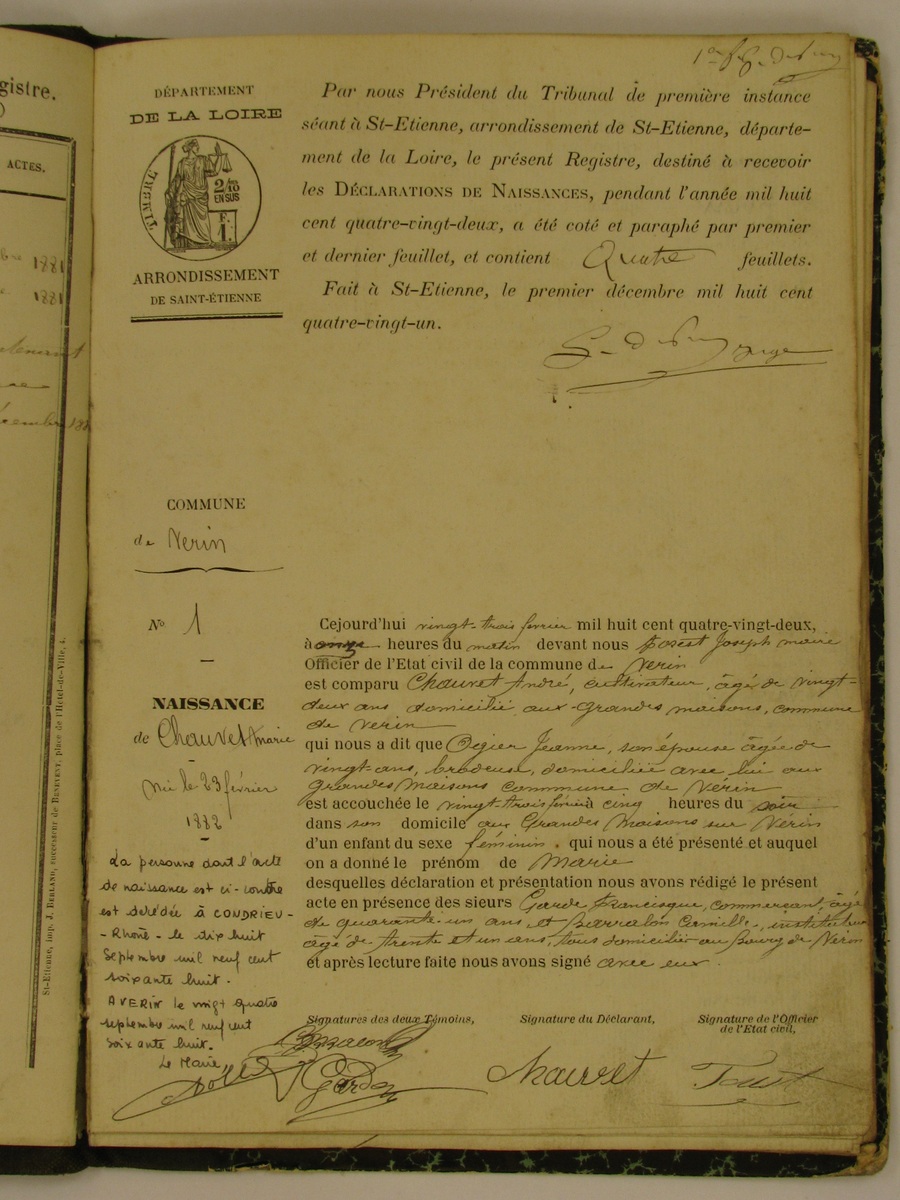 gistre.
ACTES.
1881
1881
St-Etienne, imp. J. BERLAND, successeur de BENEVENT, place de l'Hôtel-de-Ville, 4.
DÉPARTEMENT
DE LA LOIRE
TIMBRE
2/10
EN SUS
F.
1.
ARRONDISSEMENT
DE SAINT-ÉTIENNE
Par nous Président du Tribunal de première instance
séant à St-Etienne, arrondissement de St-Etienne, départe-
ment de la Loire, le présent Registre, destiné à recevoir
les DÉCLARATIONS DE NAISSANCES, pendant l'année mil huit
cent quatre-vingt-deux, a été coté et paraphé par premier
et dernier feuillet, et contient Quatre feuillets.
Fait à St-Etienne, le premier décembre mil huit cent
quatre-vingt-un.
COMMUNE
de Verin
No 1
NAISSANCE
de Chauvet Marie
Né le 23 février
1882
La personne dont l'acte
de naissance est ci-contre
est décédée à CONDRIEU -
- Rhône - le dix huit
Septembre mil neuf cent
soixante huit.
A VERIN le vingt quatre
septembre mil neuf cent
soixante huit.
Le Maire
Cejourd'hui vingt-trois fevrier mil huit cent quatre-vingt-deux,
à onze heures du matin devant nous Joseph maire
Officier de l'Etat civil de la commune de Verin
est comparu Chauvet André, cultivateur, âgé de vingt-
deux ans domicilié aux Grandes maisons, commune
de Verin
qui nous a dit que Ogier Jeanne, son épouse âgée de
vingt ans, brodeuse, domiciliée avec lui aux
Grandes Maisons commune de Vérin
est accouchée le vingt trois février à cinq heures du soir
dans son domicile aux Grandes Maisons sur Vérin
d'un enfant du sexe féminin. qui nous a été présenté et auquel
on a donné le prénom de Marie
desquelles déclaration et présentation nous avons rédigé le présent
acte en présence des sieurs Garde Francisque, commerçant, âgé
de quarante-un ans et Barralon Camille, instituteur
âgé de trente et un ans, tous domiciliés au Bourg de Verin
et après lecture faite nous avons signé avec eux.
Signatures des deux Témoins,
Signature du Déclarant,
Signature de l'Officier
de l'Etat civil,
Chauvet